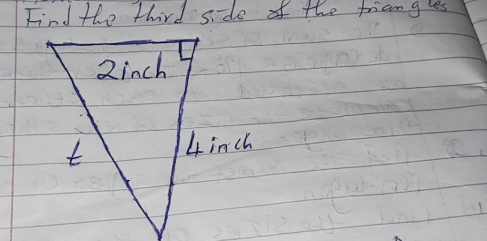 Find the third side of the triangles
2inch
t
4inch